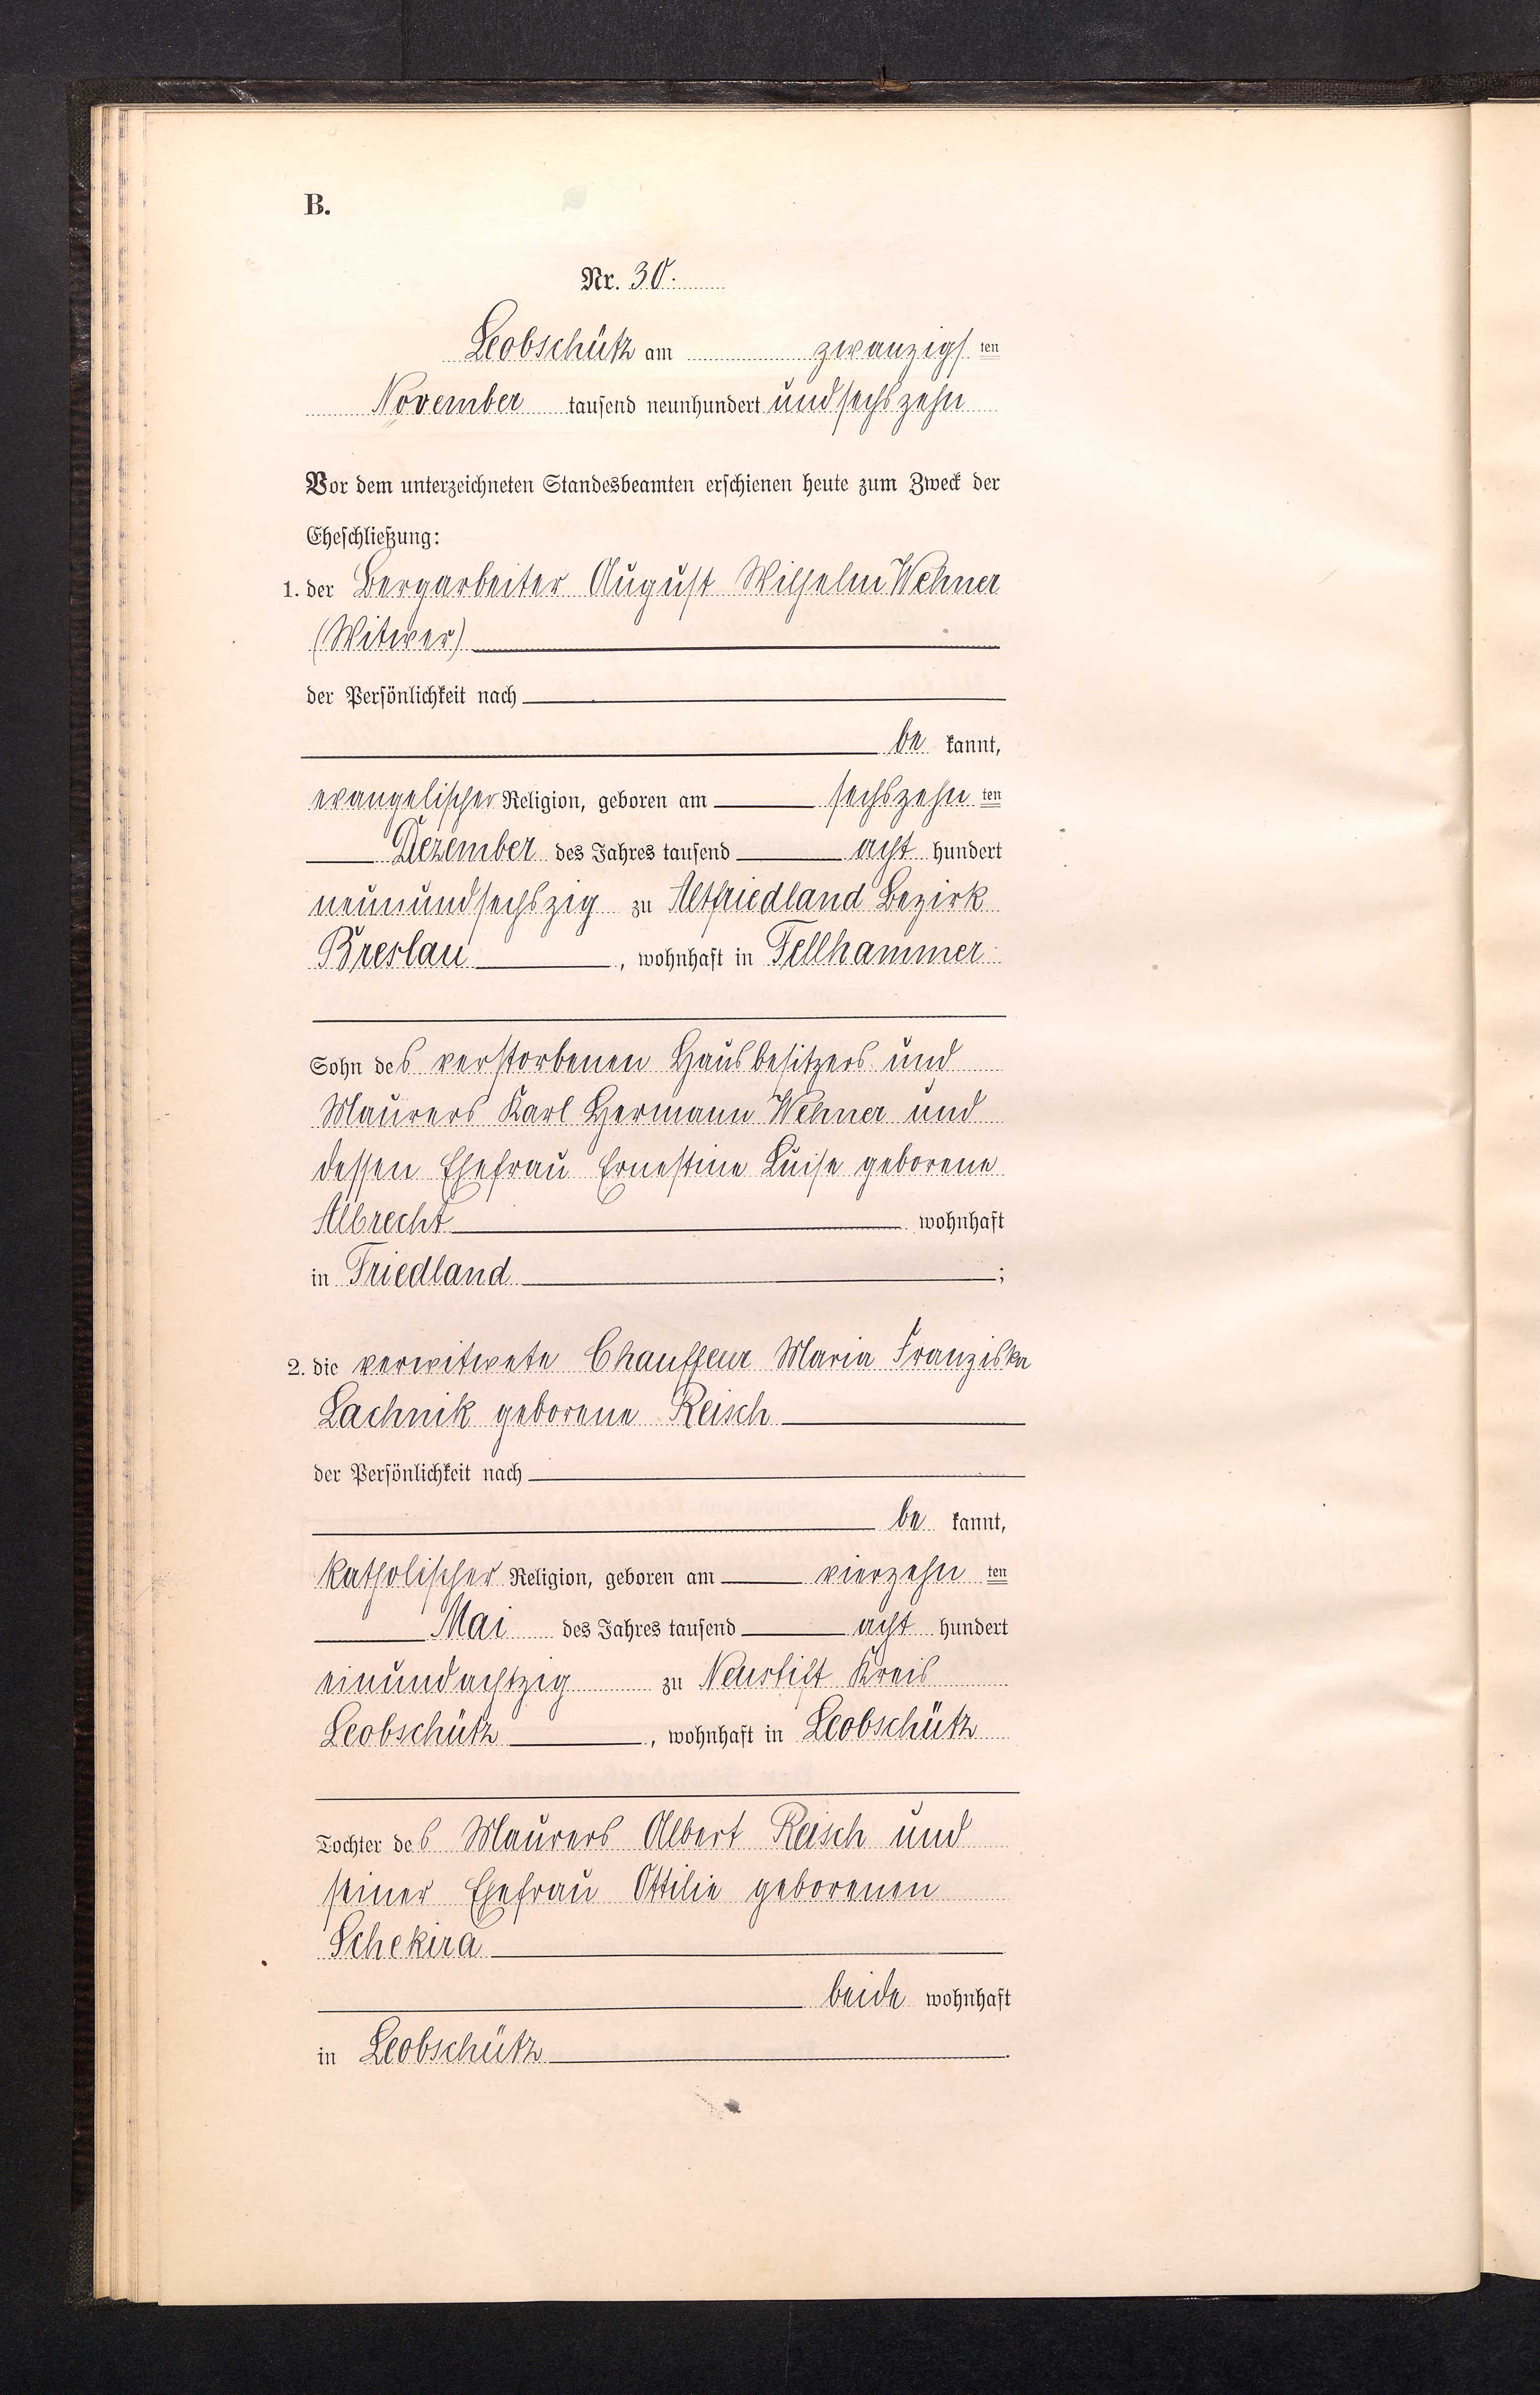 B.
Nr. 30.
Leobschütz am zwanzigsten
November tausend neunhundert und sechszehn
Vor dem unterzeichneten Standesbeamten erschienen heute zum Zweck der
Eheschließung:
1. der Bergarbeiter August Wilhelm Wehner
(Witwer)
der Persönlichkeit nach
be kannt,
evangelischer Religion, geboren am sechszehn ten
Dezember des Jahres tausend acht hundert
neunundsechszig zu Altfriedland Bezirk
Breslau, wohnhaft in Fellhammer
Sohn des verstorbenen Hausbesitzers und
Maurers Karl Hermann Wehner und
dessen Ehefrau Ernestine Luise geborene
Albrecht wohnhaft
in Friedland;
2. die verwitwete Chauffeur Maria Franziska
Lachnik geborene Reisch
der Persönlichkeit nach
be kannt,
katholischer Religion, geboren am vierzehn ten
Mai des Jahres tausend acht hundert
einundachtzig zu Neustift Kreis
Leobschütz, wohnhaft in Leobschütz
Tochter des Maurers Albert Reisch und
seiner Ehefrau Ottilie geborenen
Schekira
beide wohnhaft
in Leobschütz.